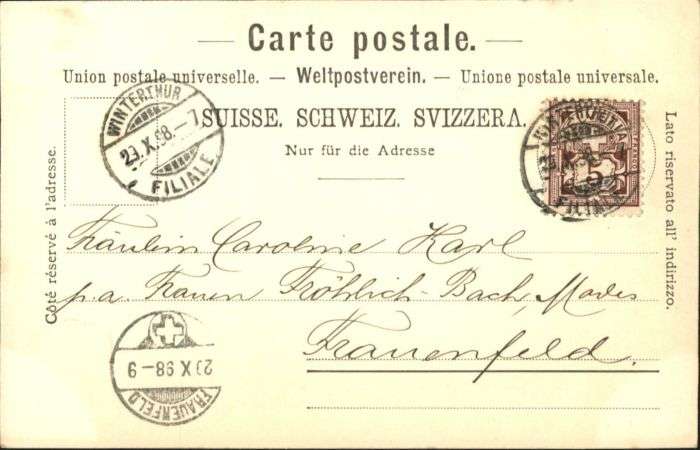 Carte postale.
Union postale universelle. — Weltpostverein. — Unione postale universale.
SUISSE. SCHWEIZ. SVIZZERA.
Nur für die Adresse
Côté réservé à l'adresse.
Lato riservato all' indirizzo.
WINTERTHUR
29. X. 98. — 7
FILIALE
HELVETIA
5
FILIALE
Fräulein Caroline Karl
p. a. Frauen Fröhlich-Bach, Modes
Frauenfeld.
FRAUENFELD
X 98 – 9